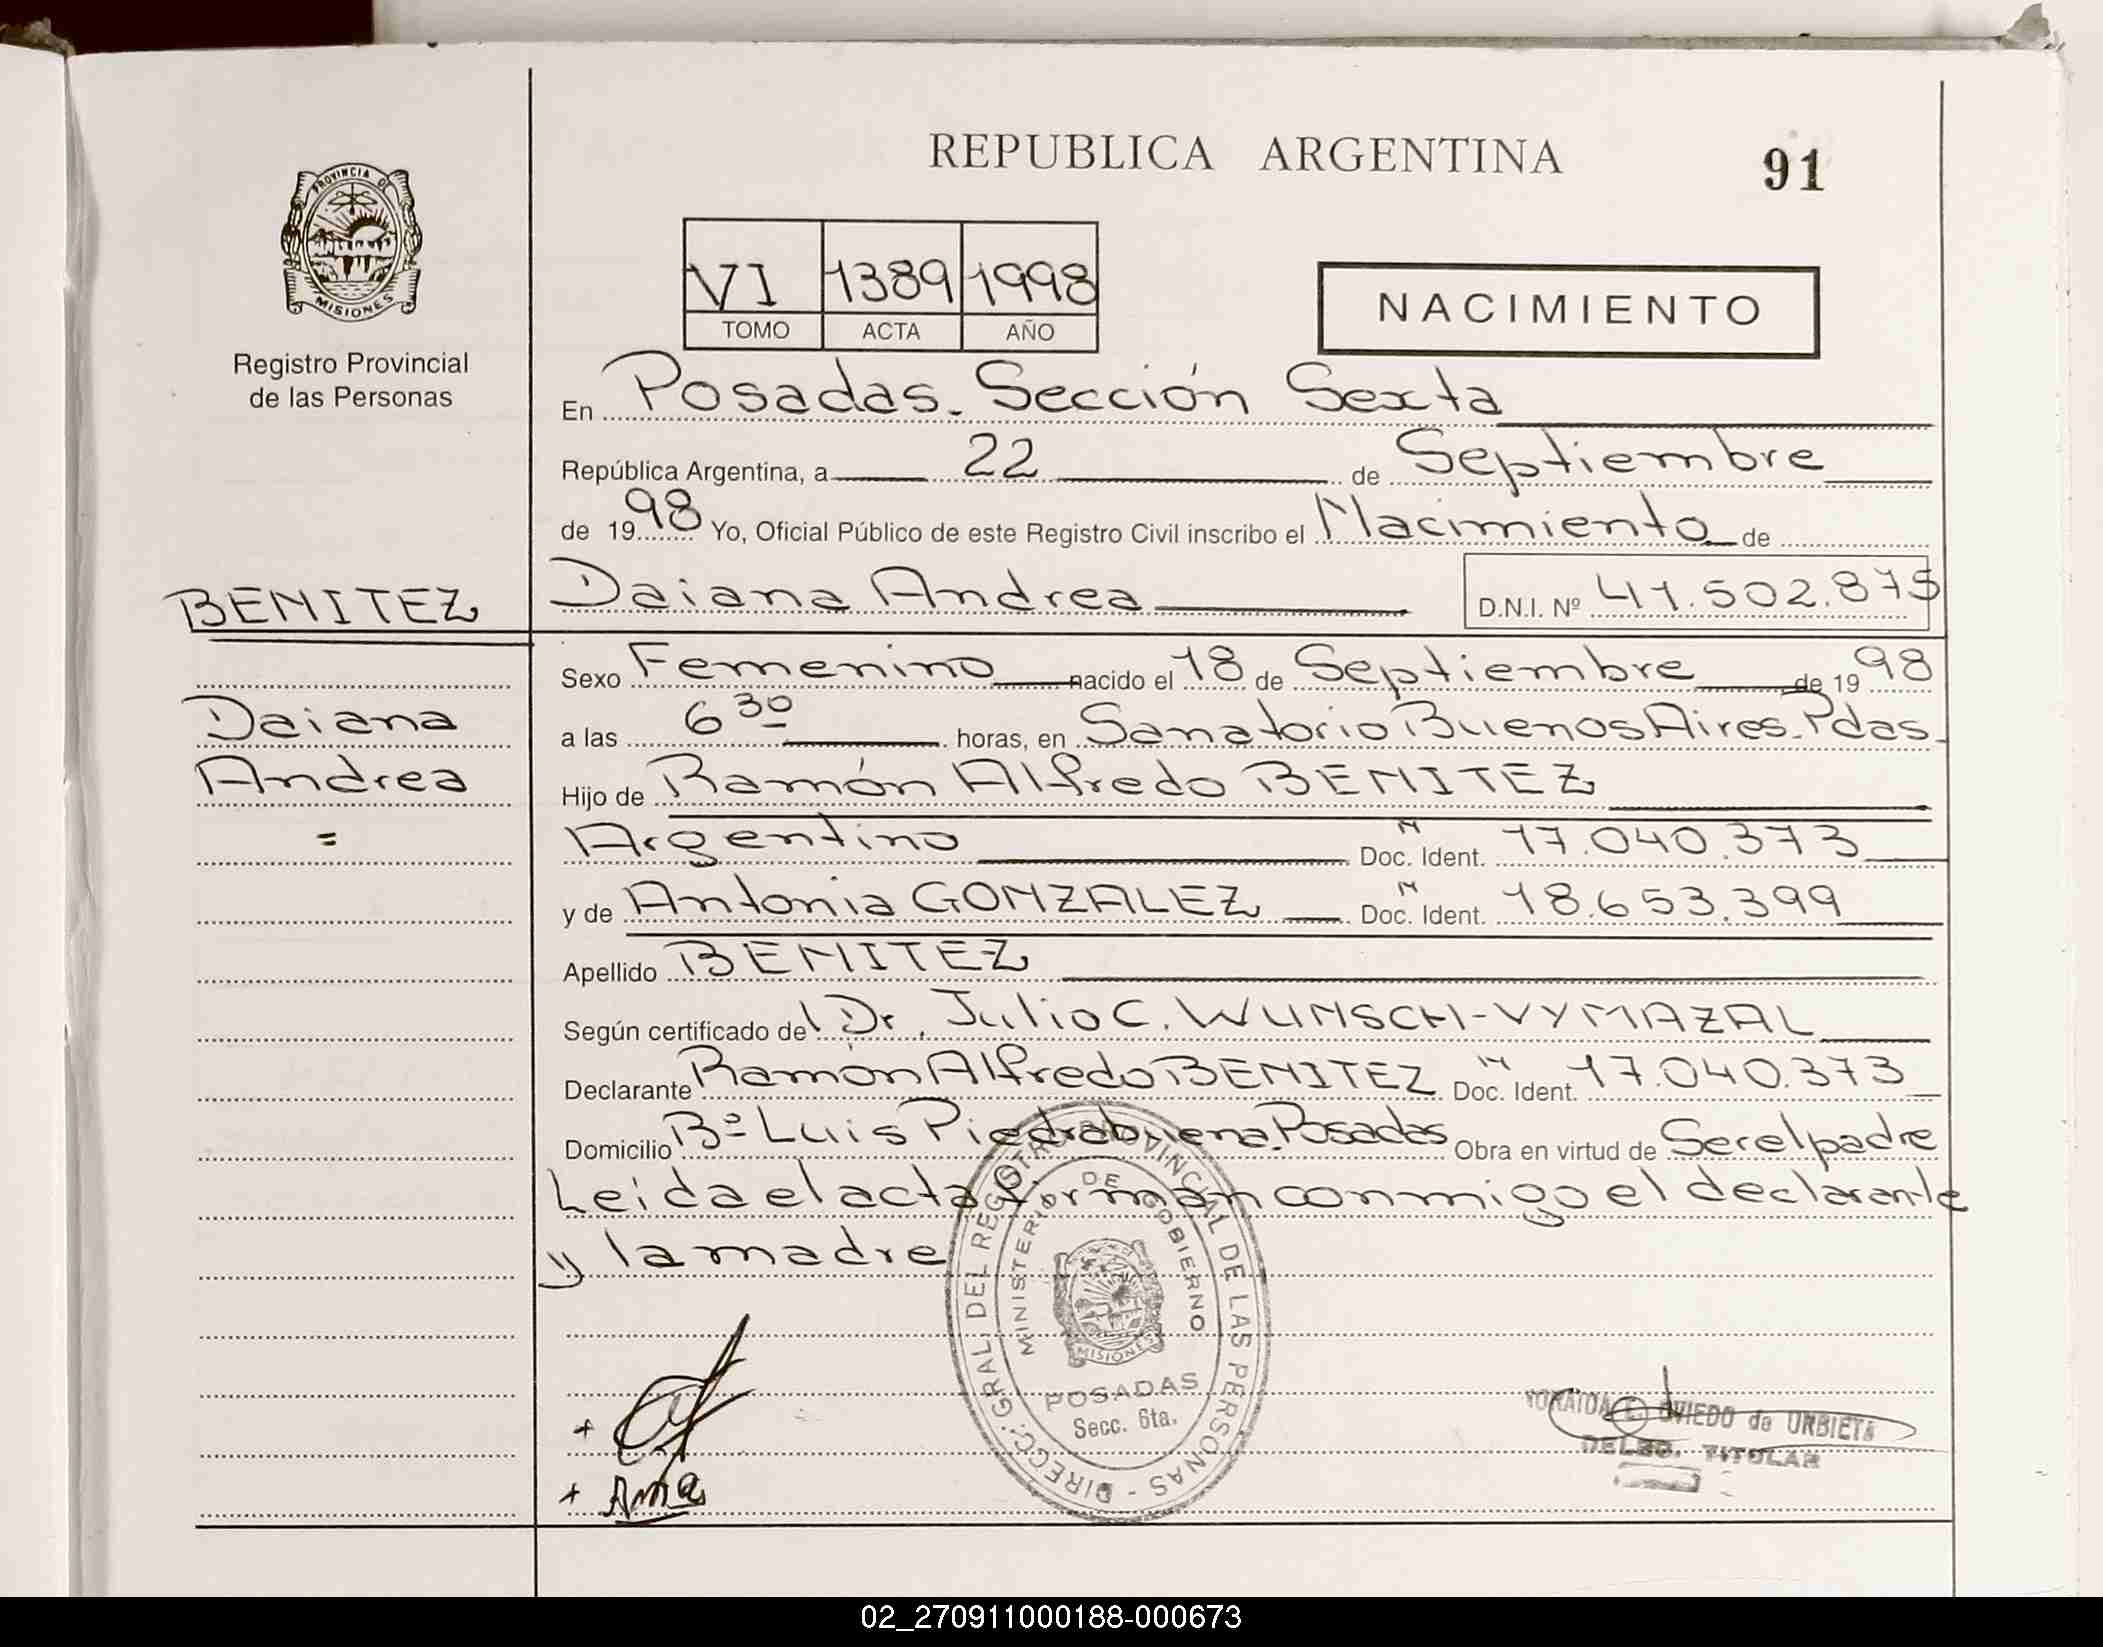 REPUBLICA ARGENTINA
91
PROVINCIA DE
MISIONES
Registro Provincial
de las Personas
VI 1389 1998
TOMO ACTA AÑO
NACIMIENTO
En Posadas. Sección Sexta
República Argentina, a 22 de Septiembre
de 1998 Yo, Oficial Público de este Registro Civil inscribo el Nacimiento de
BENITEZ
Daiana Andrea D.N.I. Nº 41.502.875
Sexo Femenino nacido el 18 de Septiembre de 1998
Daiana
a las 6 30 horas, en Sanatorio Buenos Aires. Pdas.
Andrea
Hijo de Ramón Alfredo BENITEZ
=
Argentino Doc. Ident. N 17.040.373
y de Antonia GONZALEZ Doc. Ident. N 18.653.399
Apellido BENITEZ
Según certificado de Dr. Julio C. WUNSCH-VYMAZAL
Declarante Ramón Alfredo BENITEZ Doc. Ident. N 17.040.373
Domicilio Bº Luis Piedrabuena. Posadas Obra en virtud de Ser el padre
Leida el acta firman conmigo el declarante
y la madre
DIRECC. GRAL DEL REGISTRO PROVINCIAL DE LAS PERSONAS -
MINISTERIO DE GOBIERNO
MISIONES
POSADAS
Secc. 6ta.
OVIEDO de URBIETA
DELEG. TITULAR
02_270911000188-000673